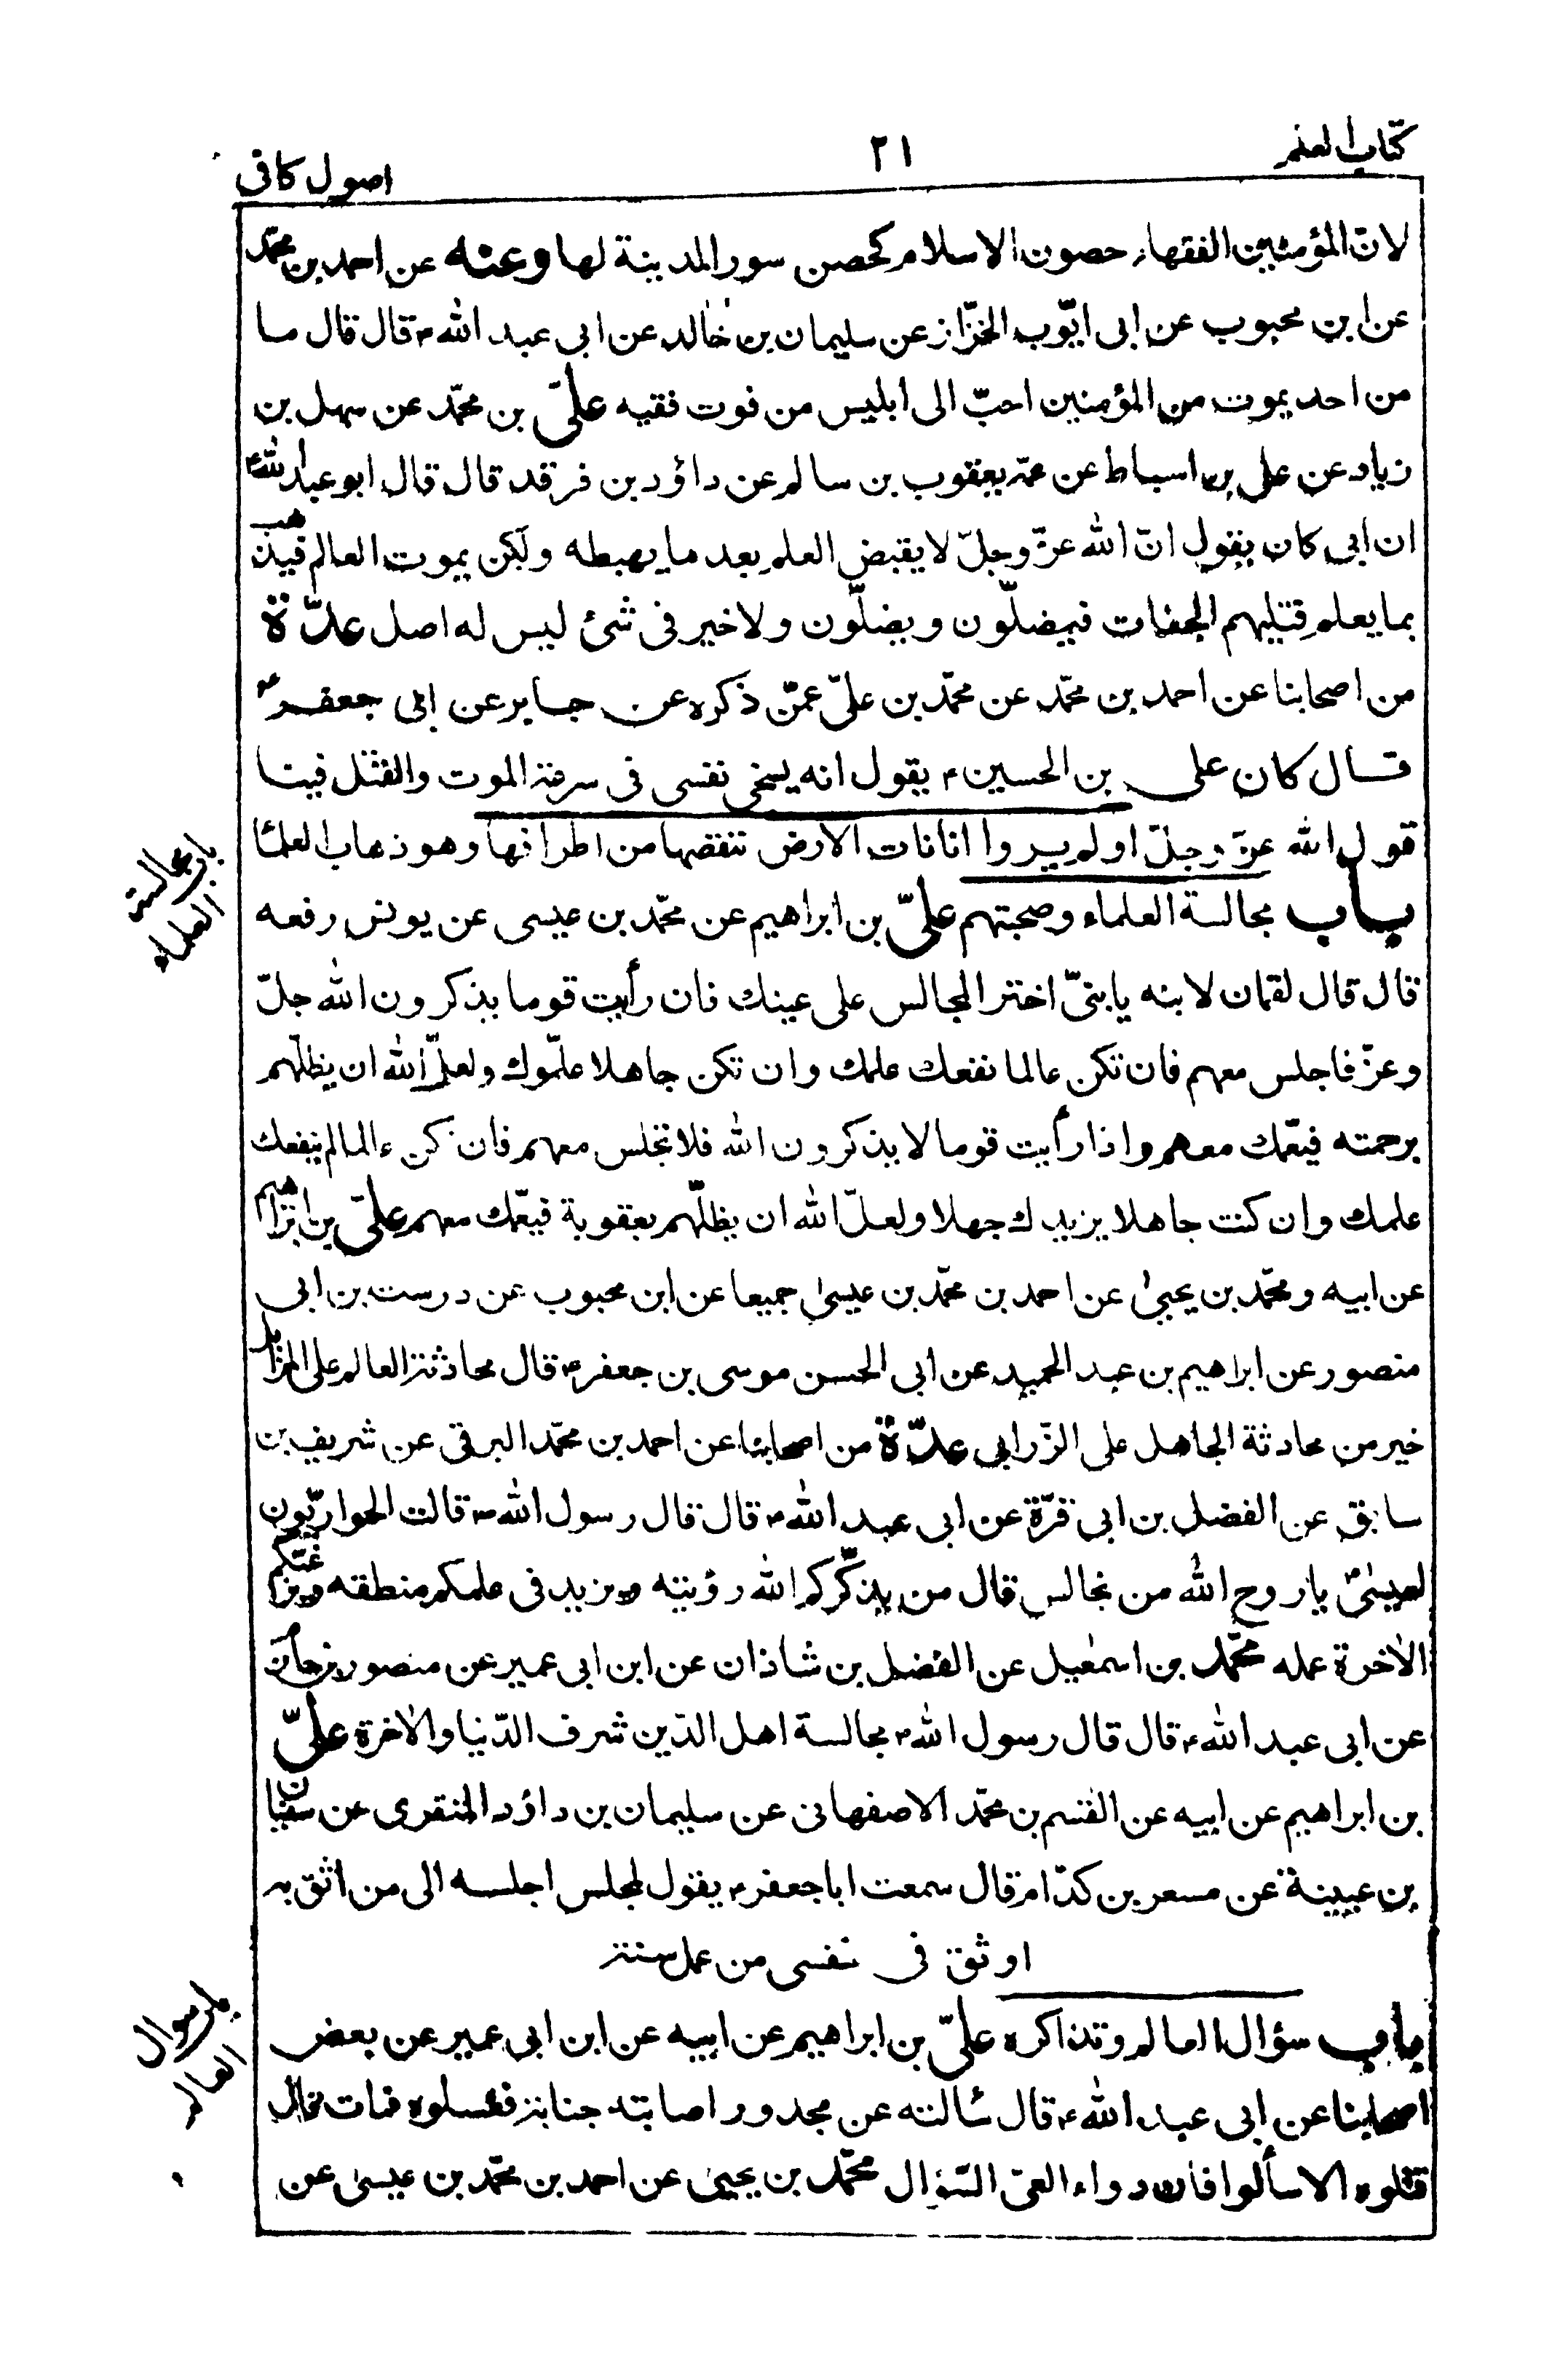 كتاب العلم
٢١
اصول كافى
لانّ المؤمنين الفقهاء حصون الاسلام كحصن سور المدينة لها وعنه عن احمد بن محمّد
عن ابن محبوب عن ابى ايّوب الخزّاز عن سليمان بن خالد عن ابى عبد الله ع قال قال ما
من احد يموت من المؤمنين احبّ الى ابليس من فوت فقيه علىّ بن محمّد عن سهل بن
زياد عن على بن اسباط عن عمّه يعقوب بن سالم عن داؤد بن فرقد قال قال ابو عبد الله ع
ان ابى كان يقول انّ الله عزّ وجلّ لا يقبض العلم بعد ما يهبطه ولكن يموت العالم فيذهب
بما يعلم فتليهم الجفات فيضلّون ويضلّون ولا خير فى شئ ليس له اصل عدّة
من اصحابنا عن احمد بن محمّد عن محمّد بن علىّ عمّن ذكره عن جابر عن ابى جعفر ع
قال كان على بن الحسين ع يقول انه يسخى نفسى فى سرعة الموت والقتل فينا
قول الله عزّ وجلّ اولم يروا انا نات الارض ننقصها من اطرافها وهو ذهاب العلما
باب مجالسة العلماء
باب مجالسة العلماء وصحبتهم علىّ بن ابراهيم عن محمّد بن عيسى عن يونس رفعه
قال قال لقمان لابنه يا بنىّ اختر المجالس على عينك فان رأيت قوما يذكرون الله جلّ
وعزّ فاجلس معهم فان تكن عالما نفعك علمك وان تكن جاهلا علّموك ولعلّ الله ان يظلّهم
برحمته فيعّمك معهم واذا رأيت قوما لا يذكرون الله فلا تجلس معهم فان تكن عالما لم ينفعك
علمك وان كنت جاهلا يزيدك جهلا ولعلّ الله ان يظلّهم بعقوبة فيعّمك معهم علىّ بن ابراهيم
عن ابيه ومحمّد بن يحيىٰ عن احمد بن محمّد بن عيسىٰ جميعا عن ابن محبوب عن درست بن ابى
منصور عن ابراهيم بن عبد الحميد عن ابى الحسن موسى بن جعفر ع قال محادثة العالم على المزابل
خير من محادثة الجاهل على الزّرابى عدّة من اصحابنا عن احمد بن محمّد البرقى عن شريف بن
سابق عن الفضل بن ابى قرّة عن ابى عبد الله ع قال قال رسول الله ص قالت الحواريّون
لعيسىٰ ع يا روح الله من نجالس قال من يذكّركم الله رؤيته ويزيد فى علمكم منطقه ويرغّبكم فى
الاخرة عمله محمّد بن اسمٰعيل عن الفضل بن شاذان عن ابن ابى عمير عن منصور بن حازم
عن ابى عبد الله ع قال قال رسول الله ص مجالسة اهل الدّين شرف الدّنيا والاخرة علىّ
بن ابراهيم عن ابيه عن القٰسم بن محمّد الاصفهانى عن سليمان بن داؤد المنقرى عن سفيان
بن عيينة عن مسعر بن كدّام قال سمعت ابا جعفر ع يقول لمجلس اجلسه الى من اثق به
اوثق فى نفسى من عمل سنة
باب سوال العالم
باب سؤال العالم وتذاكره علىّ بن ابراهيم عن ابيه عن ابن ابى عمير عن بعض
اصحابنا عن ابى عبد الله ع قال سألته عن مجدور اصابته جنابة فغسلوه فمات فقال
قتلوه الا سألوا فان دواء العىّ السّؤال محمّد بن يحيىٰ عن احمد بن محمّد بن عيسىٰ عن